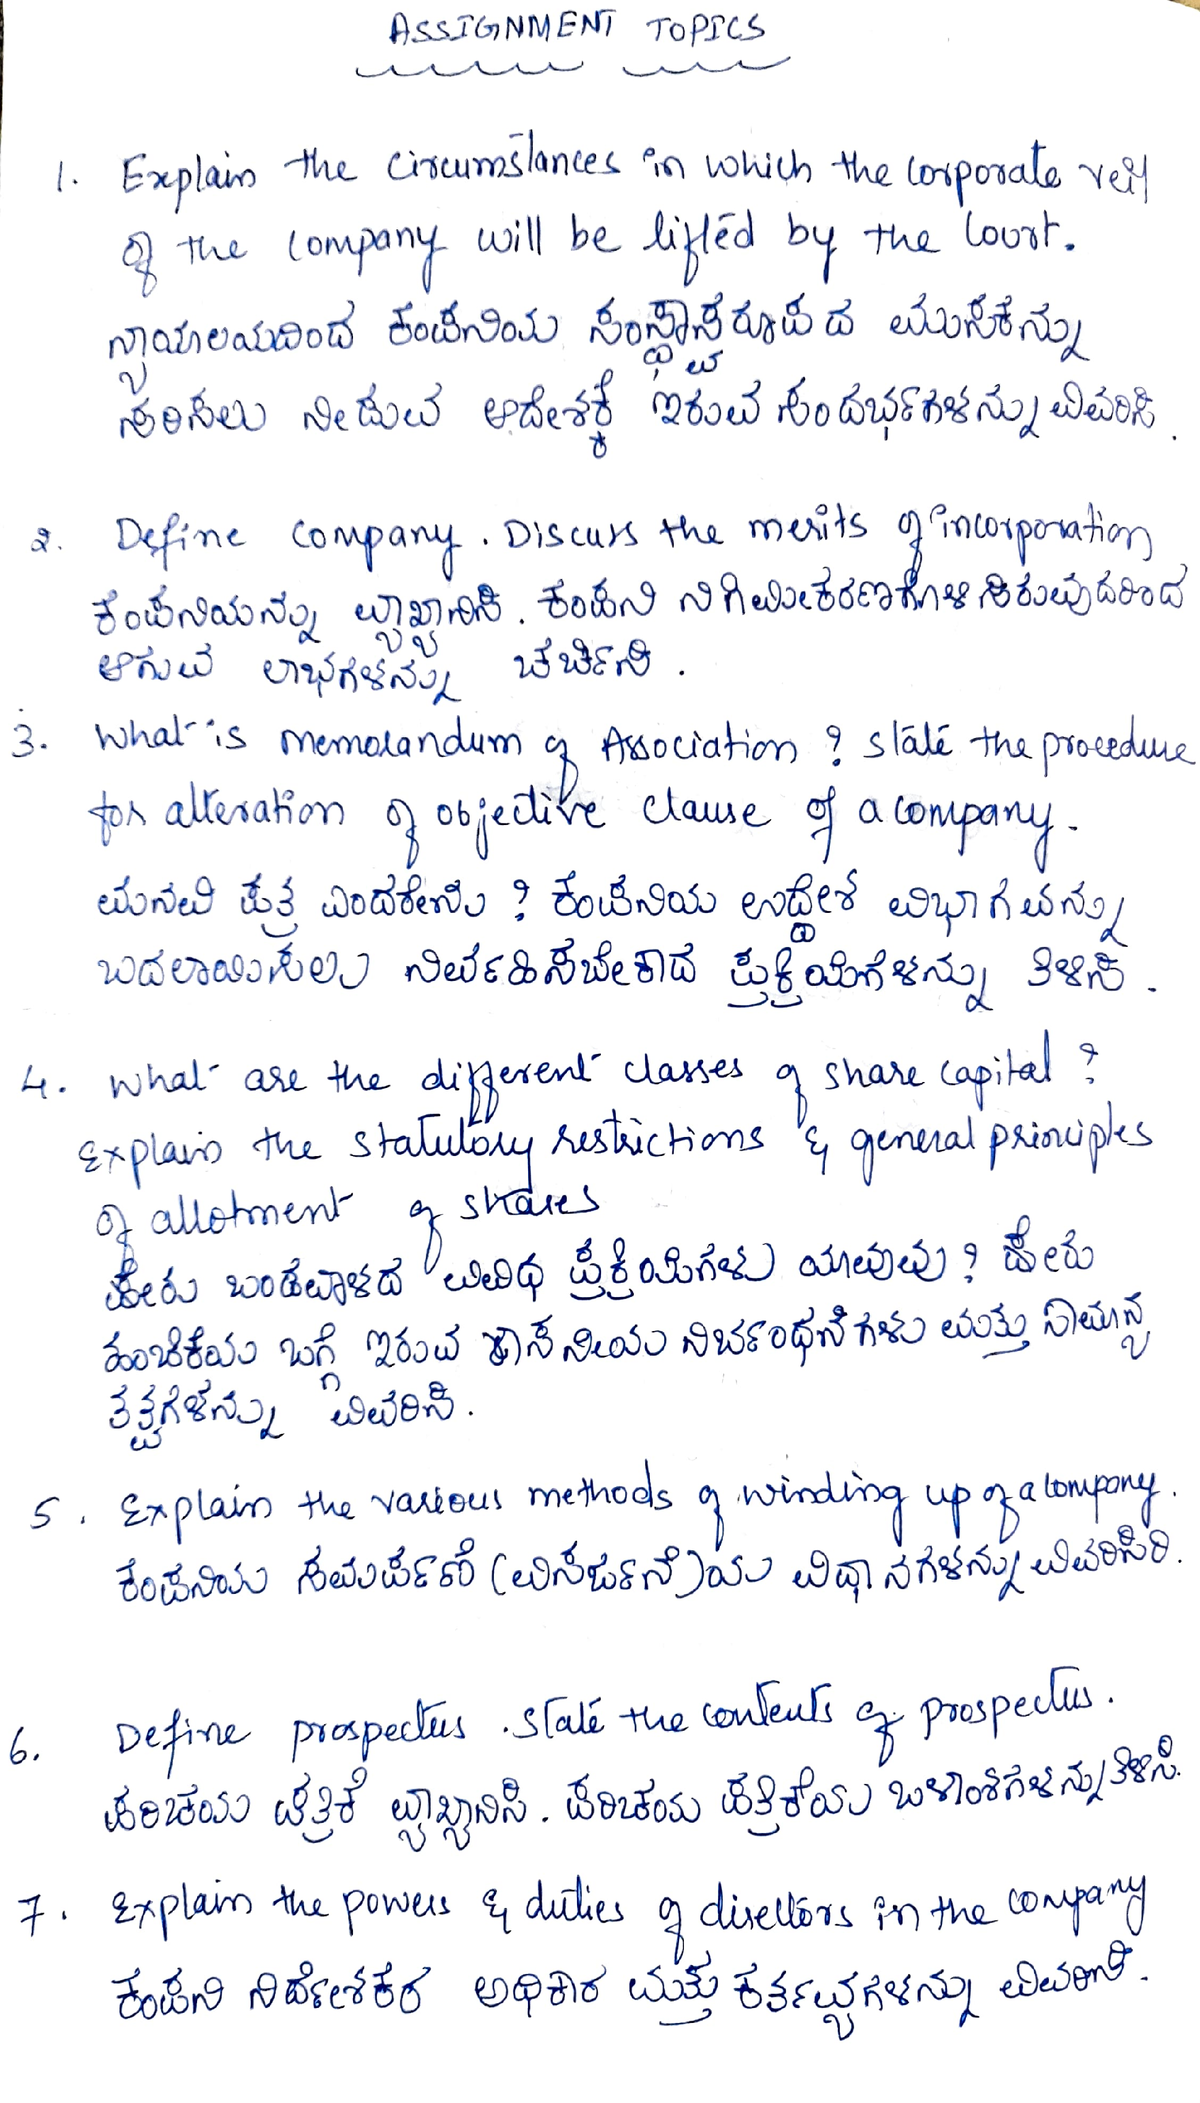 ASSIGNMENT TOPICS
1. Explain the circumstances in which the corporate veil
of the company will be lifted by the court.
ನ್ಯಾಯಾಲಯದಿಂದ ಕಂಪನಿಯ ಸಂಸ್ಥಾಸ್ವರೂಪದ ಮುಸುಕನ್ನು
ಸರಿಸಲು ನೀಡುವ ಆದೇಶಕ್ಕೆ ಇರುವ ಸಂದರ್ಭಗಳನ್ನು ವಿವರಿಸಿ.
2. Define company. Discuss the merits of incorporation
ಕಂಪನಿಯನ್ನು ವ್ಯಾಖ್ಯಾನಿಸಿ. ಕಂಪನಿ ನಿಗಮೀಕರಣಗೊಳಿಸಿರುವುದರಿಂದ
ಆಗುವ ಲಾಭಗಳನ್ನು ಚರ್ಚಿಸಿ.
3. What is memorandum of Association? State the procedure
for alteration of objective clause of a company.
ಮನವಿ ಪತ್ರ ಎಂದರೇನು? ಕಂಪನಿಯ ಉದ್ದೇಶ ವಿಭಾಗವನ್ನು
ಬದಲಾಯಿಸಲು ನಿರ್ವಹಿಸಬೇಕಾದ ಪ್ರಕ್ರಿಯೆಗಳನ್ನು ತಿಳಿಸಿ.
4. What are the different classes of share capital?
Explain the statutory restrictions & general principles
of allotment of shares
ಷೇರು ಬಂಡವಾಳದ ವಿವಿಧ ಪ್ರಕ್ರಿಯೆಗಳು ಯಾವುವು? ಷೇರು
ಹಂಚಿಕೆಯ ಬಗ್ಗೆ ಇರುವ ಶಾಸನೀಯ ನಿರ್ಬಂಧನೆಗಳು ಮತ್ತು ಸಾಮಾನ್ಯ
ತತ್ವಗಳನ್ನು ವಿವರಿಸಿ.
5. Explain the various methods of winding up of a company.
ಕಂಪನಿಯ ಸಮರ್ಪಣೆ (ವಿಸರ್ಜನೆ)ಯ ವಿಧಾನಗಳನ್ನು ವಿವರಿಸಿರಿ.
6. Define prospectus. State the contents of prospectus.
ಪರಿಚಯ ಪತ್ರಿಕೆ ವ್ಯಾಖ್ಯಾನಿಸಿ. ಪರಿಚಯ ಪತ್ರಿಕೆಯ ಒಳಾಂಶಗಳನ್ನು ತಿಳಿಸಿ.
7. Explain the powers & duties of directors in the company
ಕಂಪನಿ ನಿರ್ದೇಶಕರ ಅಧಿಕಾರ ಮತ್ತು ಕರ್ತವ್ಯಗಳನ್ನು ವಿವರಿಸಿ.